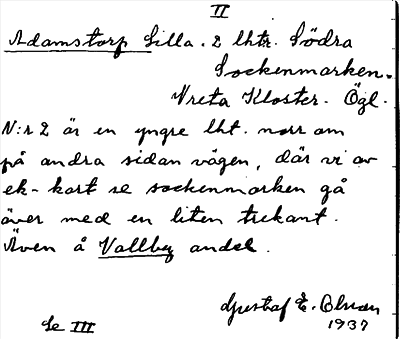 II
Adamstorp Lilla. 2 lhtr. Södra
Sockenmarken.
Vreta Kloster. Ögl.
N:r 2 är en yngre lht. norr om
på andra sidan vägen, där vi av
ek-kart se sockenmarken gå
över med en liten trekant.
Även å Vallby andel.
Gustaf E. Olson
1937
Se III